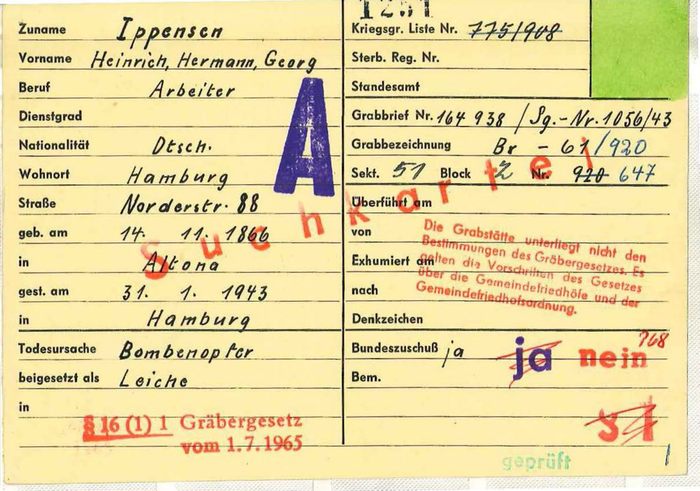 Zuname Ippensen
Vorname Heinrich, Hermann, Georg
Beruf Arbeiter
Dienstgrad
Nationalität Dtsch.
Wohnort Hamburg
Straße Norderstr. 88
geb. am 14. 11. 1866
in Altona
gest. am 31. 1. 1943
in Hamburg
Todesursache Bombenopfer
beigesetzt als Leiche
in
§ 16 (1) 1 Gräbergesetz
vom 1.7.1965
A
Suchkartei
1251
Kriegsgr. Liste Nr. 775/908
Sterb. Reg. Nr.
Standesamt
Grabbrief Nr. 164 938 / Sg.-Nr. 1056/43
Grabbezeichnung Br - 61/920
Sekt. 51 Block Z Nr. 920 647
Überführt am
von
Exhumiert am
nach
Die Grabstätte unterliegt nicht den
Bestimmungen des Gräbergesetzes. Es
gelten die Vorschriften des Gesetzes
über die Gemeindefriedhöfe und der
Gemeindefriedhofsordnung.
Denkzeichen
Bundeszuschuß ja ja nein 768
Bem.
geprüft